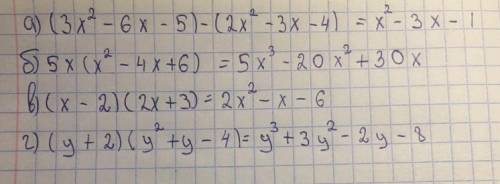 а) (3x² - 6x - 5) - (2x² - 3x - 4) = x² - 3x - 1
б) 5x (x² - 4x + 6) = 5x³ - 20x² + 30x
в) (x - 2) (2x + 3) = 2x² - x - 6
г) (y + 2) (y² + y - 4) = y³ + 3y² - 2y - 8